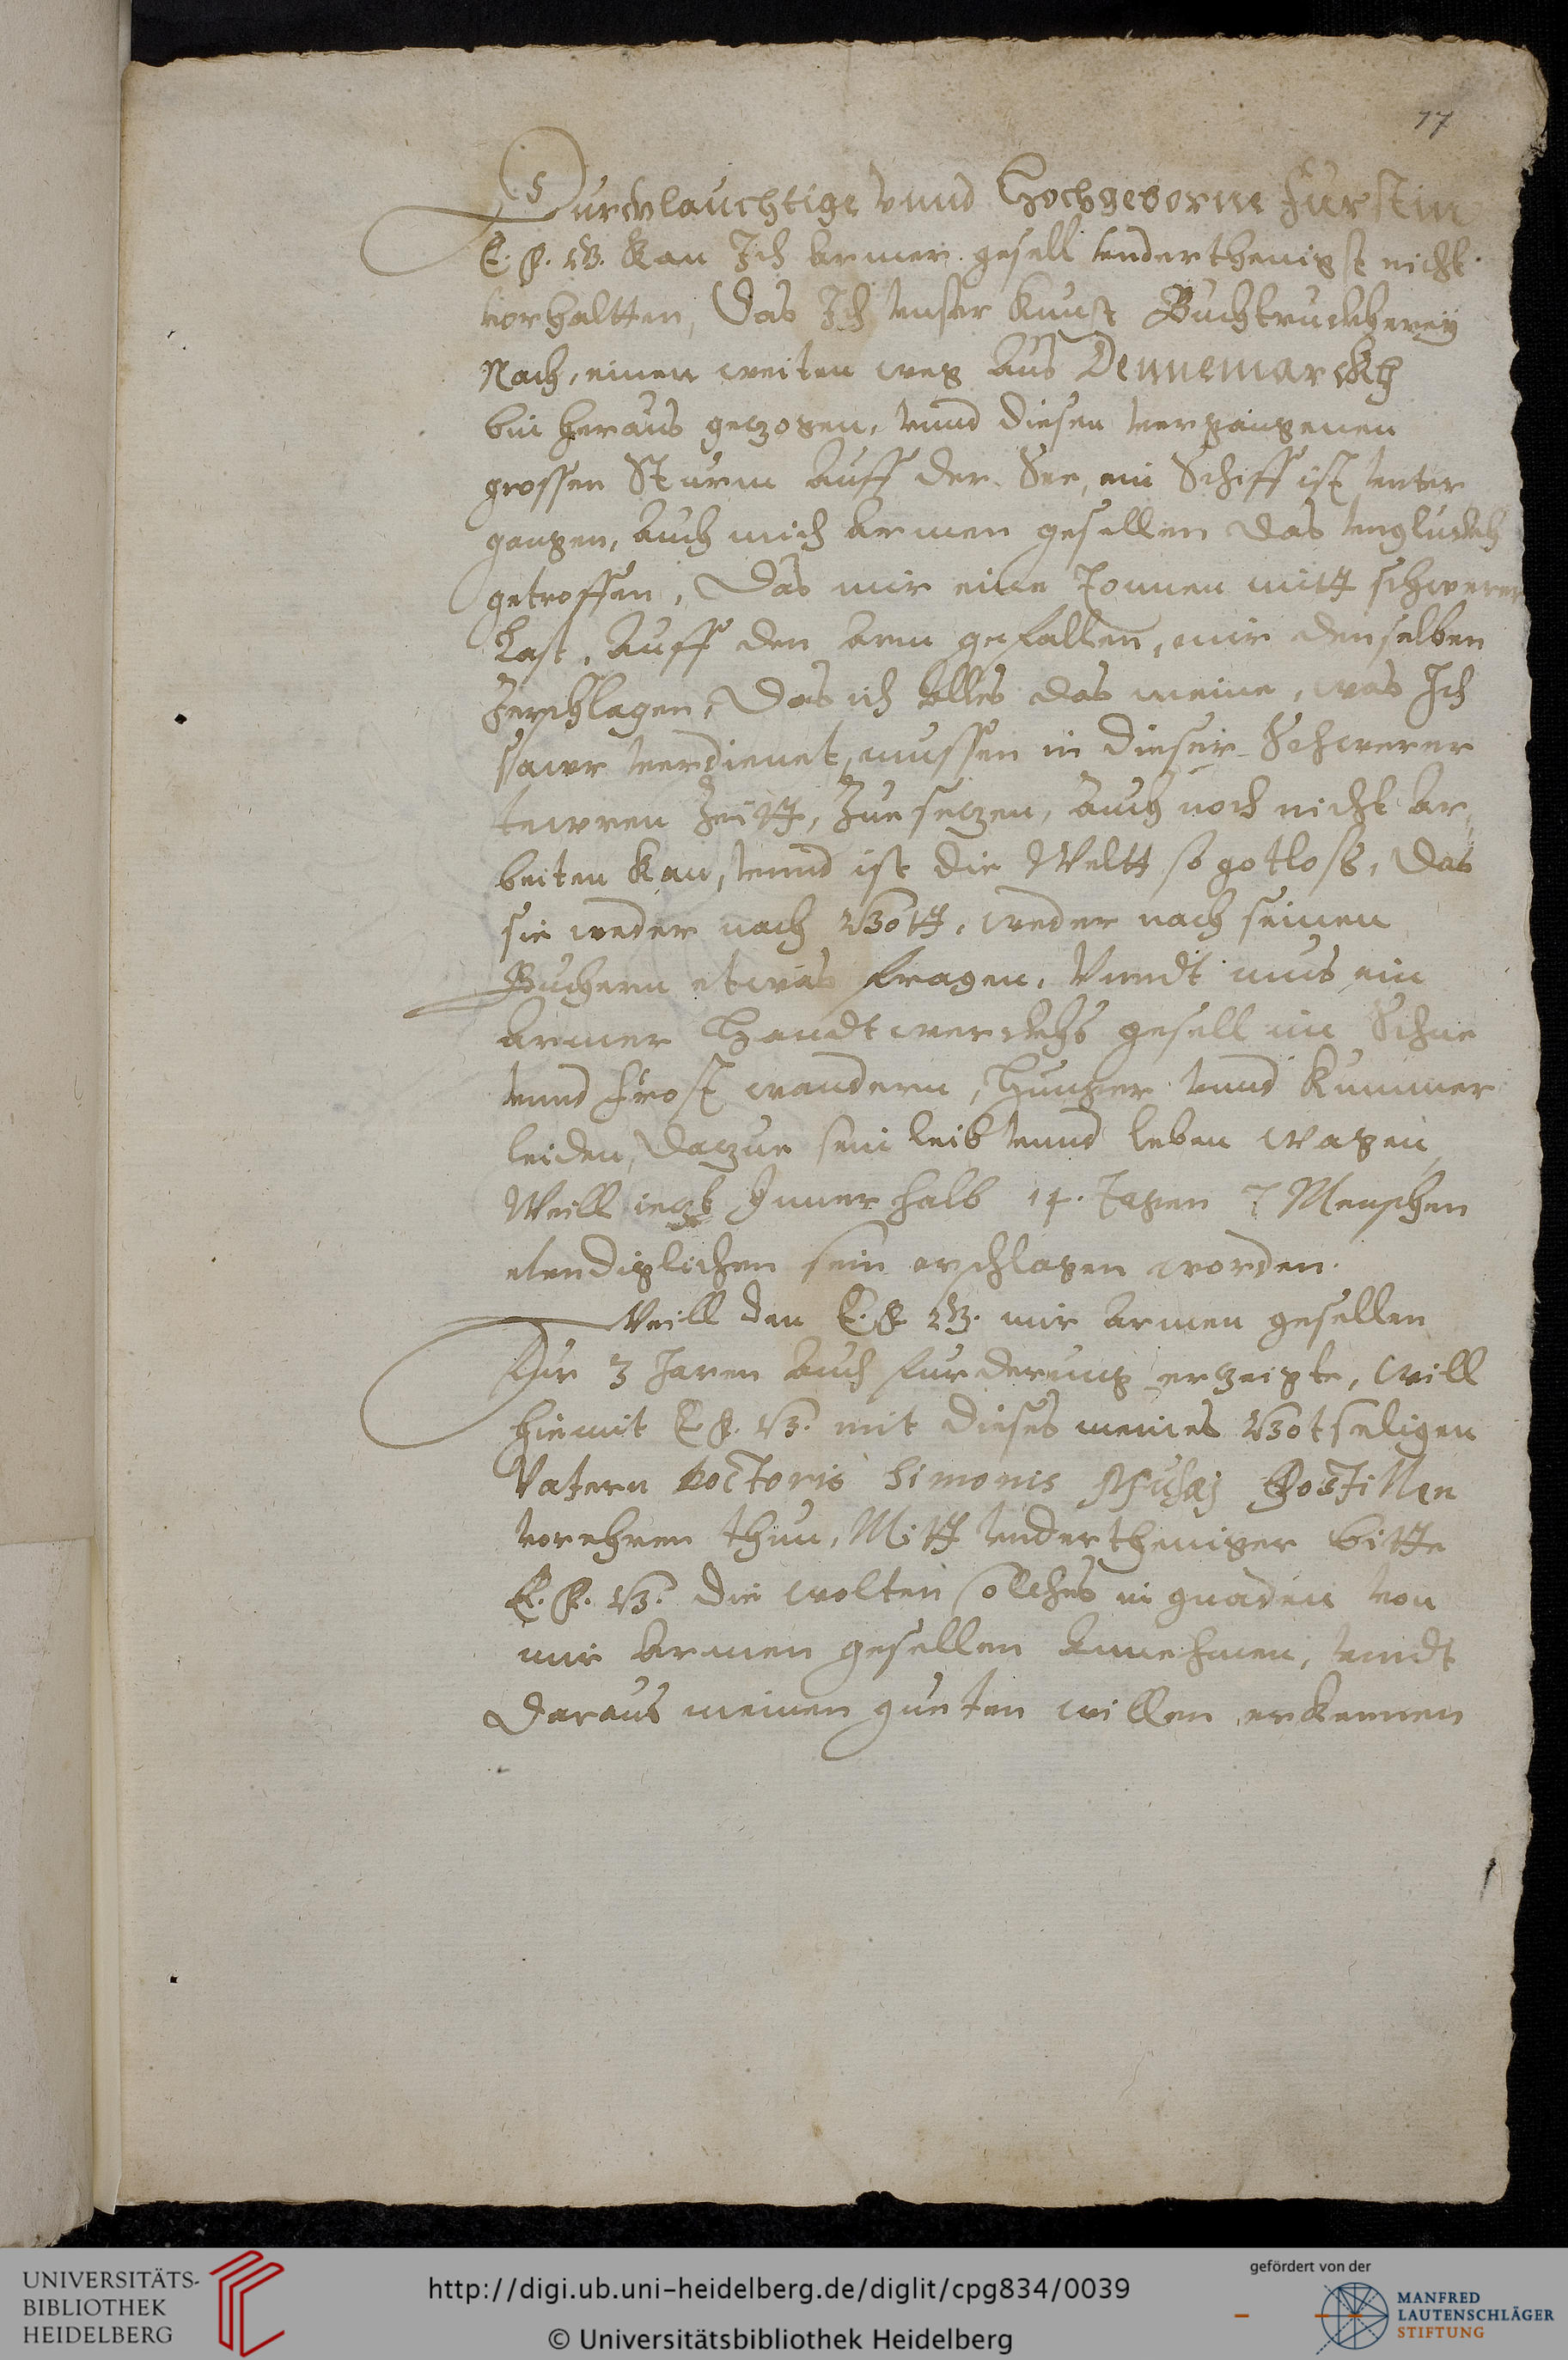 17
Durchlauchtige vnnd Hochgeborne Furstin
E. F. G. kan Ich armer gesell vnderthenigst nicht
vorhaltten, Das Ich vnser kunst Buchtruckherey
Nach, einen weiten weg aus Dennemarckh
bin heraus gezogen, vnnd diesen vergangenen
grossen Sturm auff der See, ein Schiff ist vnter
gangen, auch mich armen gesellen das vngluckh
getroffen, Das mir eine Tonnen mitt schwerer
Last, auff den arm gefallen, mir denselben
Zerschlagen, Das ich alles das meine, was Ich
sawr verdienet, mussen in dieser Schwerer
tewren Zeitt, Zue setzen, auch noch nicht ar,
beiten kan, vnnd ist die Weltt so gotloß, Das
sie weder nach Gott, weder nach seinen
Buchern etwas fragen, Vnndt mus ein
armer Handtwerckhs gesell im Schne
vnnd frost wandern, Hunger vnnd kummer
leiden, Darzue sein leib vnnd leben wagen,
Weill ietzt Innerhalb 14. Tagen 7 Menschen
elendiglichen sein erschlagen worden.
Weill den E. F. G. mir armen gesellen
Fur 3 Jaren auch furderung erzeigte, will
hiemit E. F. G. mit dieses meines Gotseligen
Vatern Doctoris Simonis Musaej Postillen
vorehren thun, Mitt vndertheniger bitte
E. F. G. die wolten solches in gnaden von
mir armen gesellen annehmen, vnndt
Daraus meinen gueten willen erkennen
UNIVERSITÄTS-
BIBLIOTHEK
HEIDELBERG
http://digi.ub.uni-heidelberg.de/diglit/cpg834/0039
© Universitätsbibliothek Heidelberg
gefördert von der
MANFRED
LAUTENSCHLÄGER
STIFTUNG